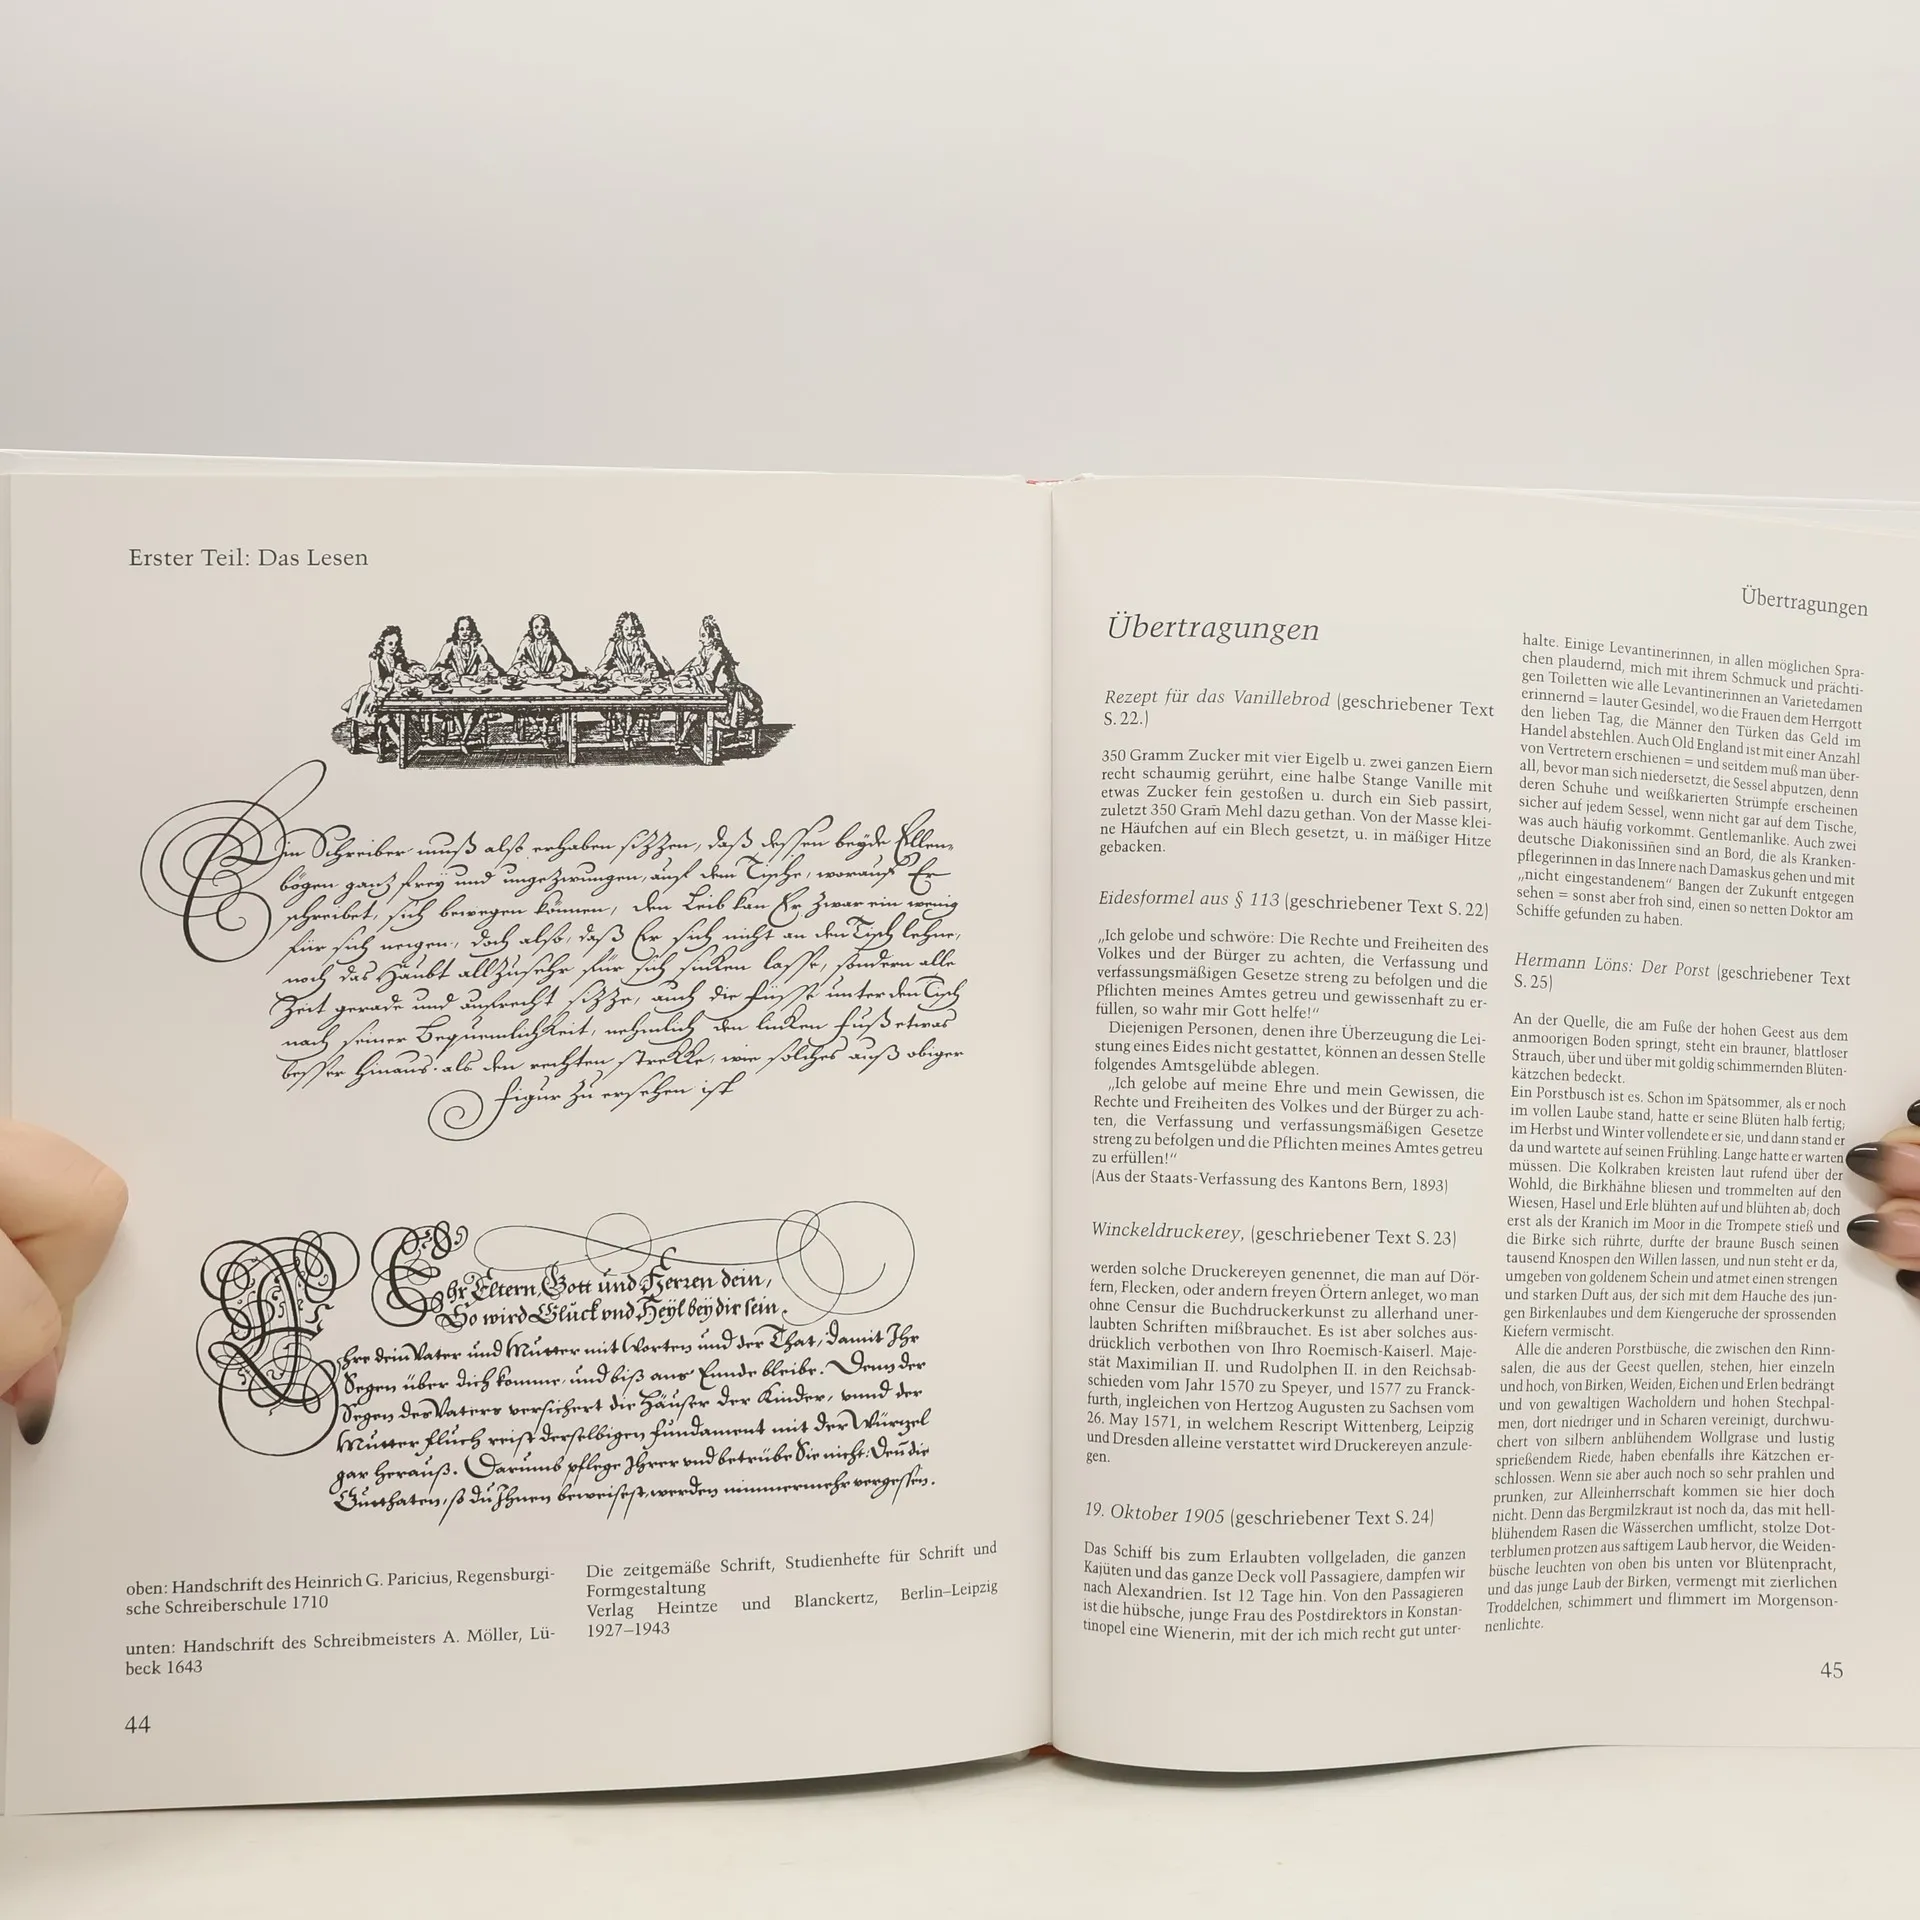 Erster Teil: Das Lesen
Ein Schreiber muß also erhaben sizzen, daß dessen beyde Ellen-
bögen ganz frey und ungezwungen, auf dem Tische, worauf Er
schreibet, sich bewegen können, den Leib kan Er zwar ein wenig
für sich neigen, doch also, daß Er sich nicht an den Tisch lehne,
noch das Haubt allzusehr für sich sinken lasse, sondern alle
Zeit gerade und aufrecht sizze, auch die Füsse unter den Tisch
nach seiner Bequemlichkeit, nehmlich den linken Fuß etwas
besser hinaus als den rechten strekke, wie solches auß obiger
Figur zu ersehen ist
Ehr Eltern, Gott und Herren dein,
So wird Glück vnd Heyl bey dir sein.
Ehre dein Vater und Mutter mit Worten und der That, damit Ihr
Segen über dich komme, und biß ans Ennde bleibe. Denn der
Segen der Vaters versichert die Häuser der Kinder, vnnd der
Mutter fluch reist derselbigen fundament mit der Würzel
gar herauß. Darumb pflege Ihrer vnd betrübe Sie nicht. Deñ die
Gutthaten, so du Ihnen beweisest, werden nimmermehr vergessen.
oben: Handschrift des Heinrich G. Paricius, Regensburgi-
sche Schreiberschule 1710
unten: Handschrift des Schreibmeisters A. Möller, Lü-
beck 1643
Die zeitgemäße Schrift, Studienhefte für Schrift und
Formgestaltung
Verlag Heintze und Blanckertz, Berlin–Leipzig
1927–1943
44
Übertragungen
Übertragungen
Rezept für das Vanillebrod (geschriebener Text
S. 22.)
350 Gramm Zucker mit vier Eigelb u. zwei ganzen Eiern
recht schaumig gerührt, eine halbe Stange Vanille mit
etwas Zucker fein gestoßen u. durch ein Sieb passirt,
zuletzt 350 Gram̄ Mehl dazu gethan. Von der Masse klei-
ne Häufchen auf ein Blech gesetzt, u. in mäßiger Hitze
gebacken.
Eidesformel aus § 113 (geschriebener Text S. 22)
„Ich gelobe und schwöre: Die Rechte und Freiheiten des
Volkes und der Bürger zu achten, die Verfassung und
verfassungsmäßigen Gesetze streng zu befolgen und die
Pflichten meines Amtes getreu und gewissenhaft zu er-
füllen, so wahr mir Gott helfe!“
Diejenigen Personen, denen ihre Überzeugung die Lei-
stung eines Eides nicht gestattet, können an dessen Stelle
folgendes Amtsgelübde ablegen.
„Ich gelobe auf meine Ehre und mein Gewissen, die
Rechte und Freiheiten des Volkes und der Bürger zu ach-
ten, die Verfassung und verfassungsmäßigen Gesetze
streng zu befolgen und die Pflichten meines Amtes getreu
zu erfüllen!“
(Aus der Staats-Verfassung des Kantons Bern, 1893)
Winckeldruckerey, (geschriebener Text S. 23)
werden solche Druckereyen genennet, die man auf Dör-
fern, Flecken, oder andern freyen Örtern anleget, wo man
ohne Censur die Buchdruckerkunst zu allerhand uner-
laubten Schriften mißbrauchet. Es ist aber solches aus-
drücklich verbothen von Ihro Roemisch-Kaiserl. Maje-
stät Maximilian II. und Rudolphen II. in den Reichsab-
schieden vom Jahr 1570 zu Speyer, und 1577 zu Franck-
furth, ingleichen von Hertzog Augusten zu Sachsen vom
26. May 1571, in welchem Rescript Wittenberg, Leipzig
und Dresden alleine verstattet wird Druckereyen anzule-
gen.
19. Oktober 1905 (geschriebener Text S. 24)
Das Schiff bis zum Erlaubten vollgeladen, die ganzen
Kajüten und das ganze Deck voll Passagiere, dampfen wir
nach Alexandrien. Ist 12 Tage hin. Von den Passagieren
ist die hübsche, junge Frau des Postdirektors in Konstan-
tinopel eine Wienerin, mit der ich mich recht gut unter-
halte. Einige Levantinerinnen, in allen möglichen Spra-
chen plaudernd, mich mit ihrem Schmuck und prächti-
gen Toiletten wie alle Levantinerinnen an Varietedamen
erinnernd = lauter Gesindel, wo die Frauen dem Herrgott
den lieben Tag, die Männer den Türken das Geld im
Handel abstehlen. Auch Old England ist mit einer Anzahl
von Vertretern erschienen = und seitdem muß man über-
all, bevor man sich niedersetzt, die Sessel abputzen, denn
deren Schuhe und weißkarierten Strümpfe erscheinen
sicher auf jedem Sessel, wenn nicht gar auf dem Tische,
was auch häufig vorkommt. Gentlemanlike. Auch zwei
deutsche Diakonissiñen sind an Bord, die als Kranken-
pflegerinnen in das Innere nach Damaskus gehen und mit
„nicht eingestandenem“ Bangen der Zukunft entgegen
sehen = sonst aber froh sind, einen so netten Doktor am
Schiffe gefunden zu haben.
Hermann Löns: Der Porst (geschriebener Text
S. 25)
An der Quelle, die am Fuße der hohen Geest aus dem
anmoorigen Boden springt, steht ein brauner, blattloser
Strauch, über und über mit goldig schimmernden Blüten-
kätzchen bedeckt.
Ein Porstbusch ist es. Schon im Spätsommer, als er noch
im vollen Laube stand, hatte er seine Blüten halb fertig;
im Herbst und Winter vollendete er sie, und dann stand er
da und wartete auf seinen Frühling. Lange hatte er warten
müssen. Die Kolkraben kreisten laut rufend über der
Wohld, die Birkhähne bliesen und trommelten auf den
Wiesen, Hasel und Erle blühten auf und blühten ab; doch
erst als der Kranich im Moor in die Trompete stieß und
die Birke sich rührte, durfte der braune Busch seinen
tausend Knospen den Willen lassen, und nun steht er da,
umgeben von goldenem Schein und atmet einen strengen
und starken Duft aus, der sich mit dem Hauche des jun-
gen Birkenlaubes und dem Kiengeruche der sprossenden
Kiefern vermischt.
Alle die anderen Porstbüsche, die zwischen den Rinn-
salen, die aus der Geest quellen, stehen, hier einzeln
und hoch, von Birken, Weiden, Eichen und Erlen bedrängt
und von gewaltigen Wacholdern und hohen Stechpal-
men, dort niedriger und in Scharen vereinigt, durchwu-
chert von silbern anblühendem Wollgrase und lustig
sprießendem Riede, haben ebenfalls ihre Kätzchen er-
schlossen. Wenn sie aber auch noch so sehr prahlen und
prunken, zur Alleinherrschaft kommen sie hier doch
nicht. Denn das Bergmilzkraut ist noch da, das mit hell-
blühendem Rasen die Wässerchen umflicht, stolze Dot-
terblumen protzen aus saftigem Laub hervor, die Weiden-
büsche leuchten von oben bis unten vor Blütenpracht,
und das junge Laub der Birken, vermengt mit zierlichen
Troddelchen, schimmert und flimmert im Morgenson-
nenlichte.
45